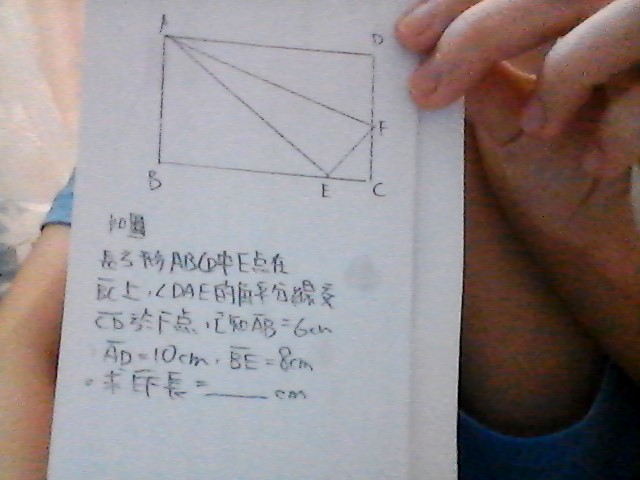 A
D
F
B
E
C
如圖
長方形ABCD中E点在
BC上，∠DAE的角平分線交
CD於F点，已知AB=6cm
AD=10cm，BE=8cm
求EF長=____cm